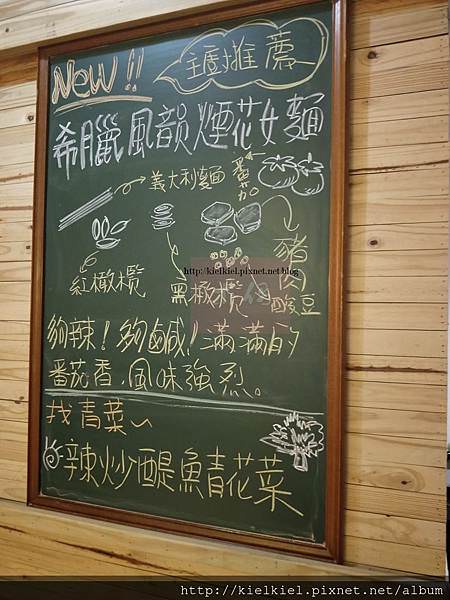 New!!
主廚推薦
希臘風韻煙花女麵
義大利麵
番茄
豬肉
http://kielkiel.pixnet.net/blog
紅橄欖
黑橄欖
酸豆
夠辣！夠鹹！滿滿的
番茄香，風味強烈。
找青菜～
辣炒鯷魚青花菜
http://kielkiel.pixnet.net/album